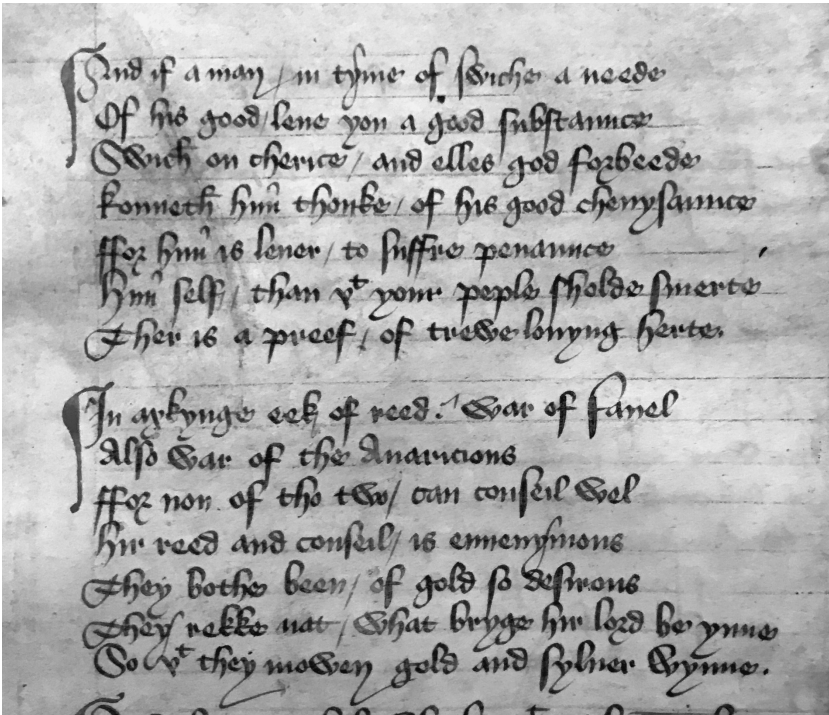 And if a man / in tyme of swiche a neede
Of his good / lene yow a good substaunce
Swich on cherice / and elles god forbeede
konneth him thonke / of his good chevysaunce
ffor him is lever / to suffre penaunce
Him self / than þt your peple sholde smerte
Ther is a preef / of trewe lovyng herte.
In axkynge eek of reed / war of ffavel
Also war of the Avaricious
ffor non of tho two / can conseil wel
hir reed and conseil / is envenymous
They bothe been / of gold so desirous
They rekke nat / what bryge hir lord be ynne
So þt they mowen gold and sylver wynne.